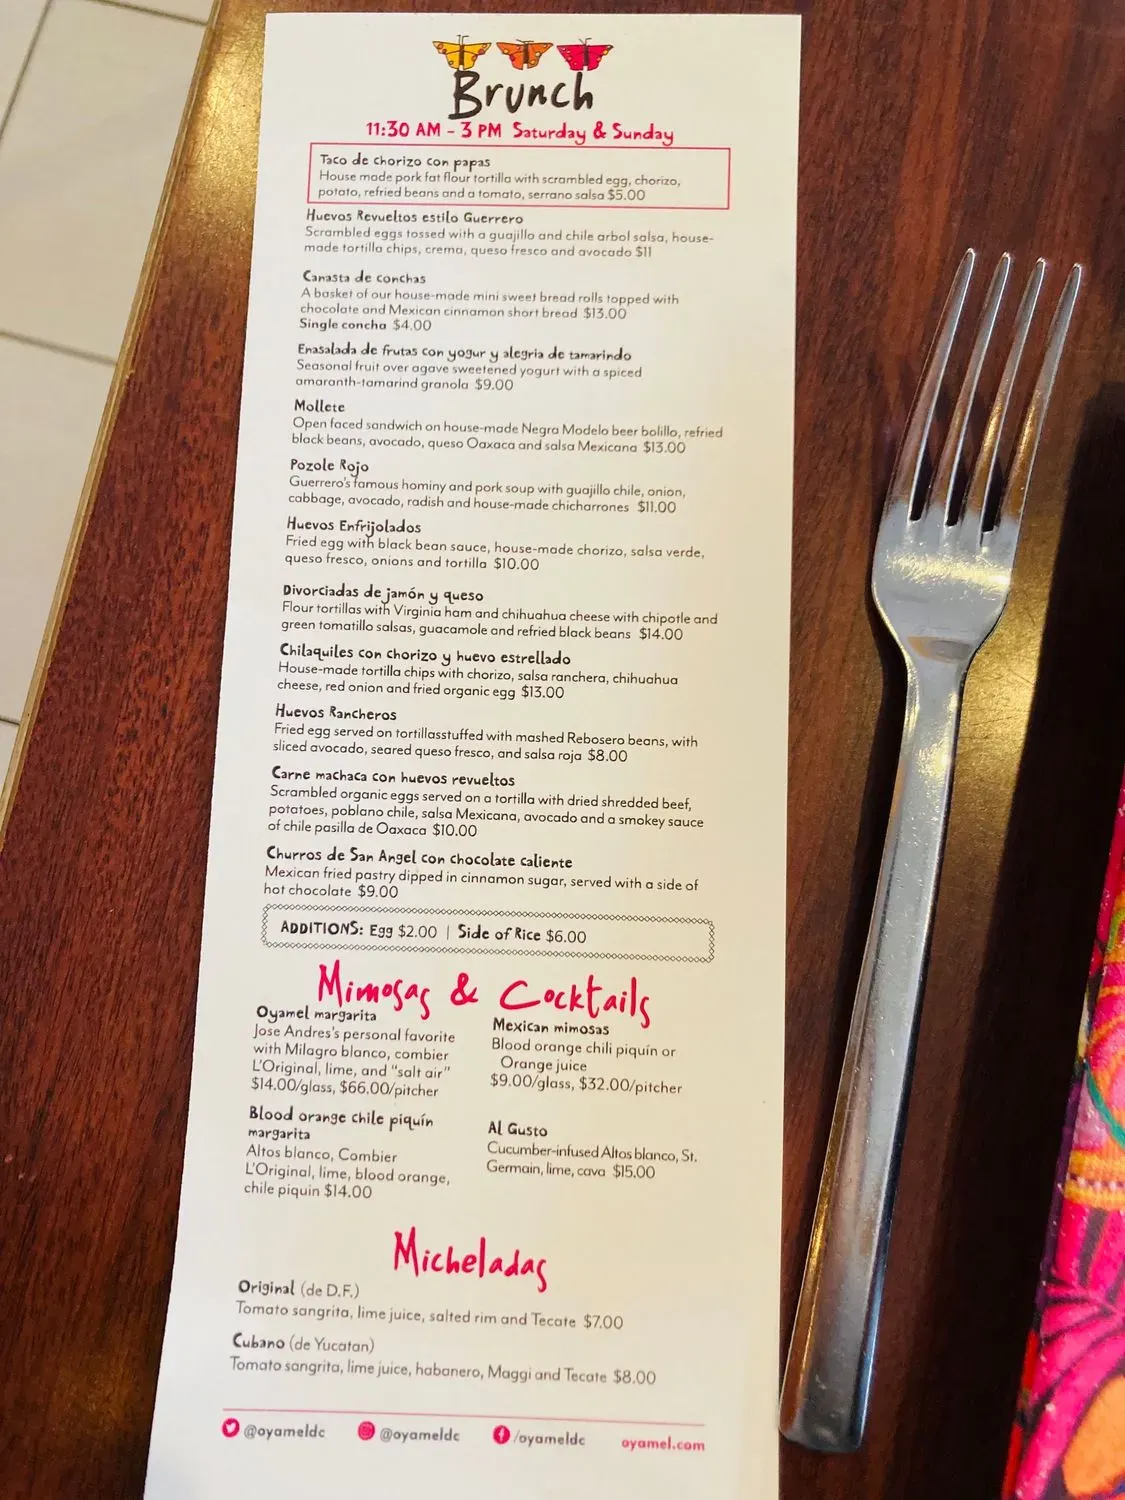 Brunch
11:30 AM - 3 PM Saturday & Sunday
Taco de chorizo con papas
House made pork fat flour tortilla with scrambled egg, chorizo,
potato, refried beans and a tomato, serrano salsa $5.00
Huevos Revueltos estilo Guerrero
Scrambled eggs tossed with a guajillo and chile arbol salsa, house-
made tortilla chips, crema, queso fresco and avocado $11
Canasta de conchas
A basket of our house-made mini sweet bread rolls topped with
chocolate and Mexican cinnamon short bread $13.00
Single concha $4.00
Enasalada de frutas con yogur y alegria de tamarindo
Seasonal fruit over agave sweetened yogurt with a spiced
amaranth-tamarind granola $9.00
Mollete
Open faced sandwich on house-made Negra Modelo beer bolillo, refried
black beans, avocado, queso Oaxaca and salsa Mexicana $13.00
Pozole Rojo
Guerrero's famous hominy and pork soup with guajillo chile, onion,
cabbage, avocado, radish and house-made chicharrones $11.00
Huevos Enfrijolados
Fried egg with black bean sauce, house-made chorizo, salsa verde,
queso fresco, onions and tortilla $10.00
Divorciadas de jamón y queso
Flour tortillas with Virginia ham and chihuahua cheese with chipotle and
green tomatillo salsas, guacamole and refried black beans $14.00
Chilaquiles con chorizo y huevo estrellado
House-made tortilla chips with chorizo, salsa ranchera, chihuahua
cheese, red onion and fried organic egg $13.00
Huevos Rancheros
Fried egg served on tortillasstuffed with mashed Rebosero beans, with
sliced avocado, seared queso fresco, and salsa roja $8.00
Carne machaca con huevos revueltos
Scrambled organic eggs served on a tortilla with dried shredded beef,
potatoes, poblano chile, salsa Mexicana, avocado and a smokey sauce
of chile pasilla de Oaxaca $10.00
Churros de San Angel con chocolate caliente
Mexican fried pastry dipped in cinnamon sugar, served with a side of
hot chocolate $9.00
ADDITIONS: Egg $2.00 | Side of Rice $6.00
Mimosas & Cocktails
Oyamel margarita
Jose Andres's personal favorite
with Milagro blanco, combier
L'Original, lime, and "salt air"
$14.00/glass, $66.00/pitcher
Blood orange chile piquín
margarita
Altos blanco, Combier
L'Original, lime, blood orange,
chile piquin $14.00
Mexican mimosas
Blood orange chili piquín or
Orange juice
$9.00/glass, $32.00/pitcher
Al Gusto
Cucumber-infused Altos blanco, St.
Germain, lime, cava $15.00
Micheladas
Original (de D.F.)
Tomato sangrita, lime juice, salted rim and Tecate $7.00
Cubano (de Yucatan)
Tomato sangrita, lime juice, habanero, Maggi and Tecate $8.00
@oyameldc @oyameldc /oyameldc oyamel.com